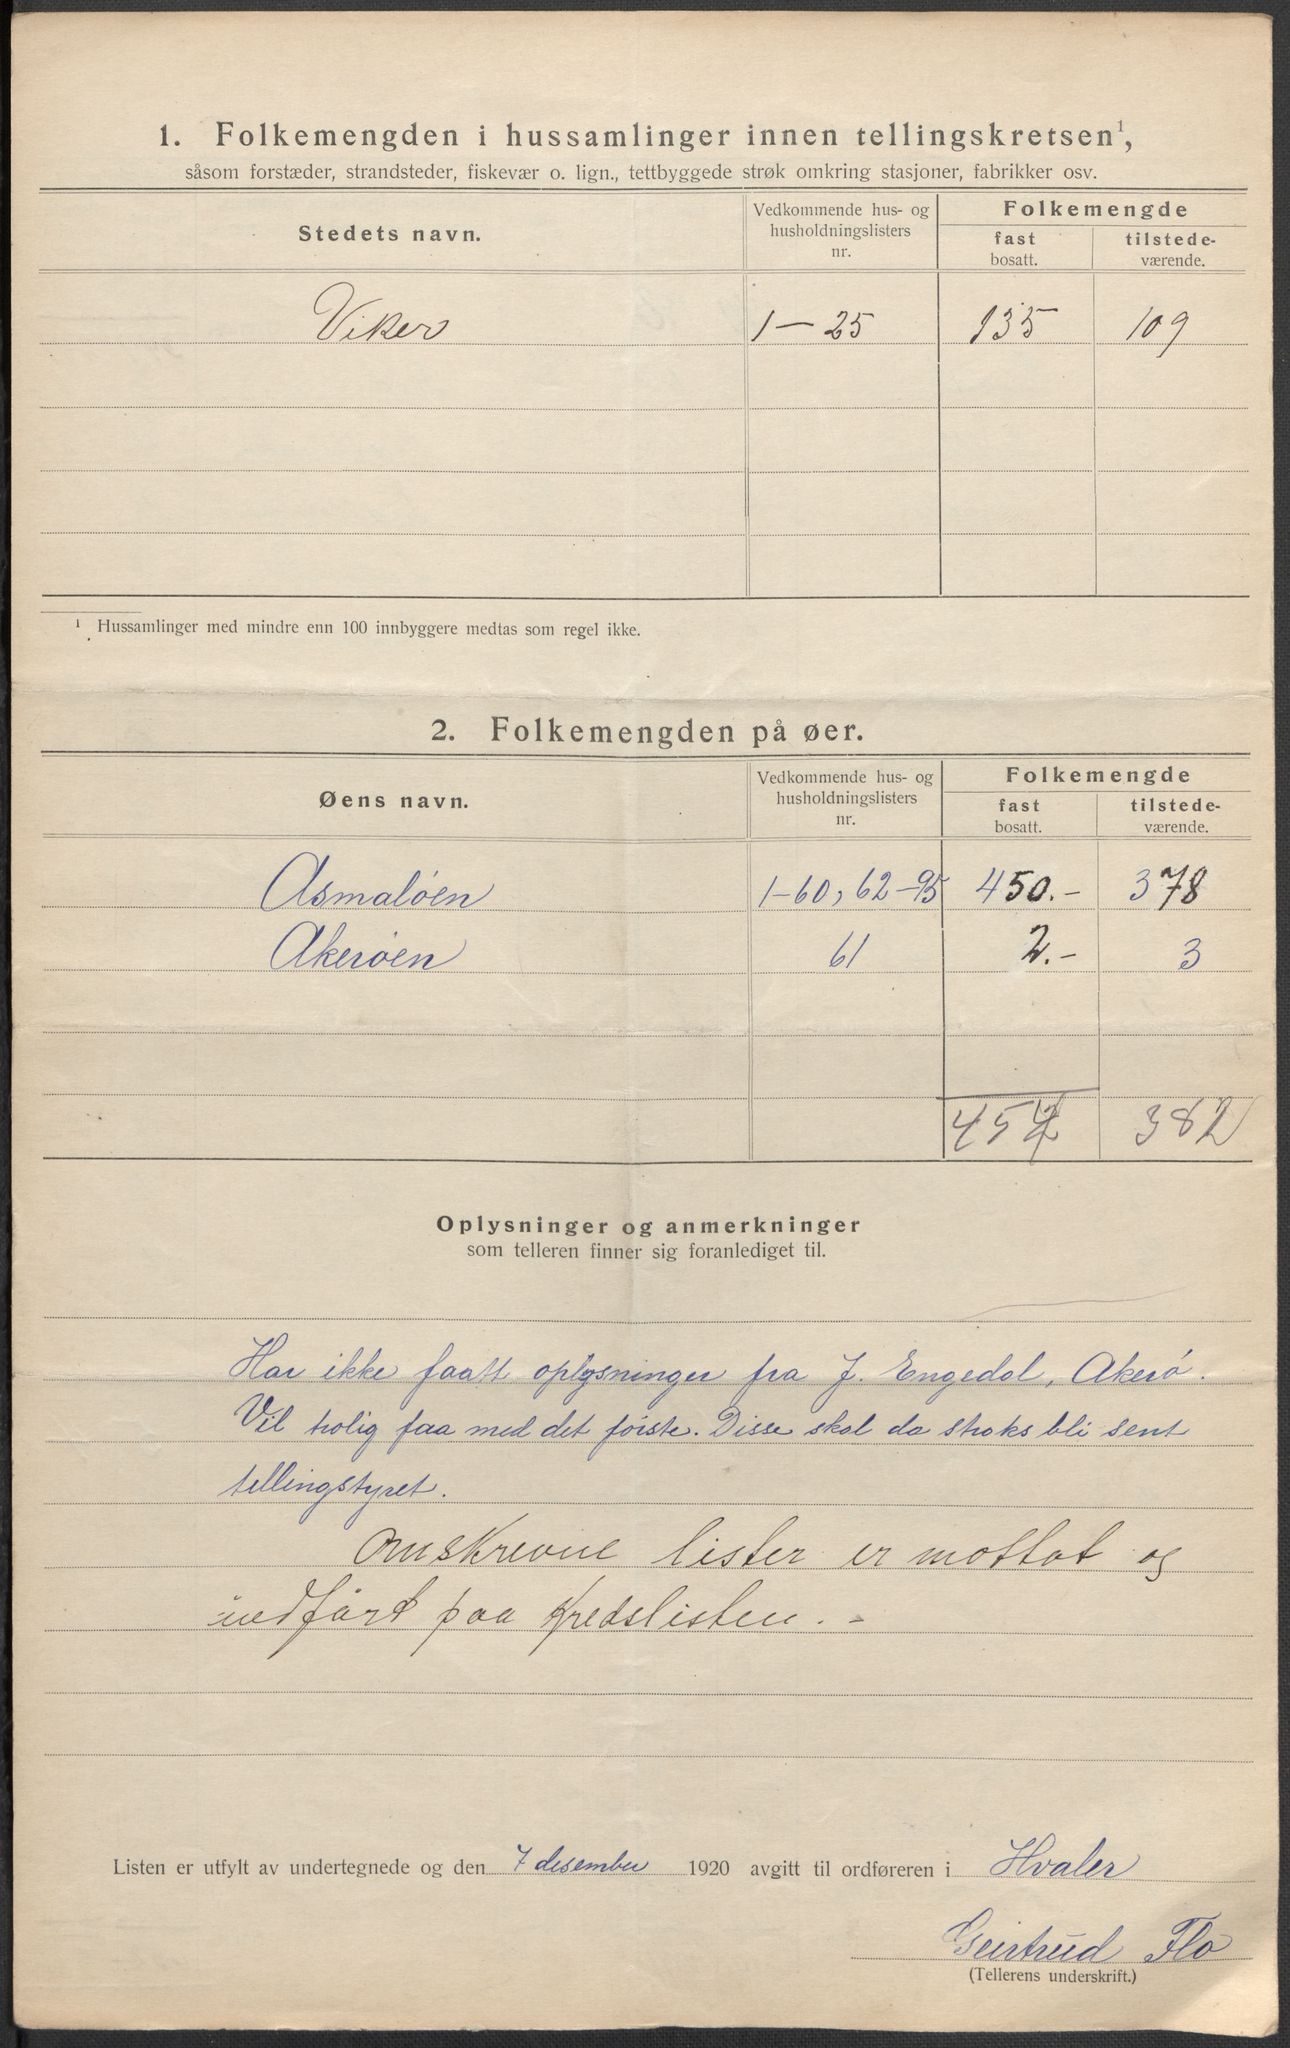 1. Folkemengden i hussamlinger innen tellingskretsen¹,
såsom forstæder, strandsteder, fiskevær o. lign., tettbyggede strøk omkring stasjoner, fabrikker osv.
Stedets navn. Vedkommende hus- og husholdningslisters nr. Folkemengde fast bosatt. tilstede-værende.
Viker 1-25 135 109
¹ Hussamlinger med mindre enn 100 innbyggere medtas som regel ikke.
2. Folkemengden på øer.
Øens navn. Vedkommende hus- og husholdningslisters nr. Folkemengde fast bosatt. tilstede-værende.
Asmaløen 1-60, 62-95 450.- 378
Akerøen 61 2.- 3
382
Oplysninger og anmerkninger
som telleren finner sig foranlediget til.
Har ikke faatt oplysninger fra J. Engedal, Akerø.
Vil trolig faa med det første. Disse skal da straks bli sent
tellingstyret.
Omskrevne lister er mottat og
indført paa Kredslisten. -
Listen er utfylt av undertegnede og den 7 desember 1920 avgitt til ordføreren i Hvaler
Geirtrud Flo
(Tellerens underskrift.)